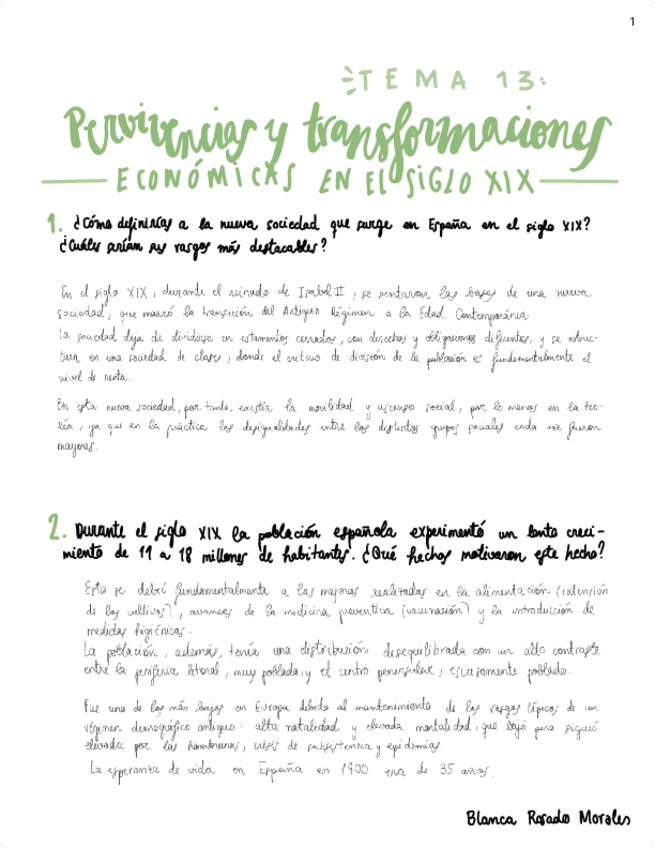 1
TEMA 13:
Pervivencias y transformaciones
ECONÓMICAS EN EL SIGLO XIX
1. ¿Cómo definirías a la nueva sociedad que surge en España en el siglo XIX?
¿Cuáles serían sus rasgos más destacables?
En el siglo XIX, durante el reinado de Isabel II, se sentaron las bases de una nueva
sociedad, que marcó la transición del Antiguo Régimen a la Edad Contemporánea.
La sociedad deja de dividirse en estamentos cerrados, con derechos y obligaciones diferentes, y se estruc-
tura en una sociedad de clases, donde el criterio de división de la población es fundamentalmente el
nivel de renta.
En esta nueva sociedad, por tanto, existía la movilidad y ascenso social, por lo menos en la teo-
ría, ya que en la práctica las desigualdades entre los distintos grupos sociales cada vez fueron
mayores.
2. Durante el siglo XIX la población española experimentó un lento creci-
miento de 11 a 18 millones de habitantes. ¿Qué hechos motivaron este hecho?
Esto se debió fundamentalmente a las mejoras realizadas en la alimentación (extensión
de los cultivos), avances de la medicina preventiva (vacunación) y la introducción de
medidas higiénicas.
La población, además, tenía una distribución desequilibrada con un alto contraste
entre la periferia litoral, muy poblada, y el centro peninsular, escasamente poblado.
Fue uno de los más bajos en Europa debido al mantenimiento de los rasgos típicos de un
régimen demográfico antiguo: alta natalidad y elevada mortalidad, que bajó pero siguió
elevada por las hambrunas, crisis de subsistencia y epidemias.
La esperanza de vida en España en 1900 era de 35 años.
Blanca Rosado Morales